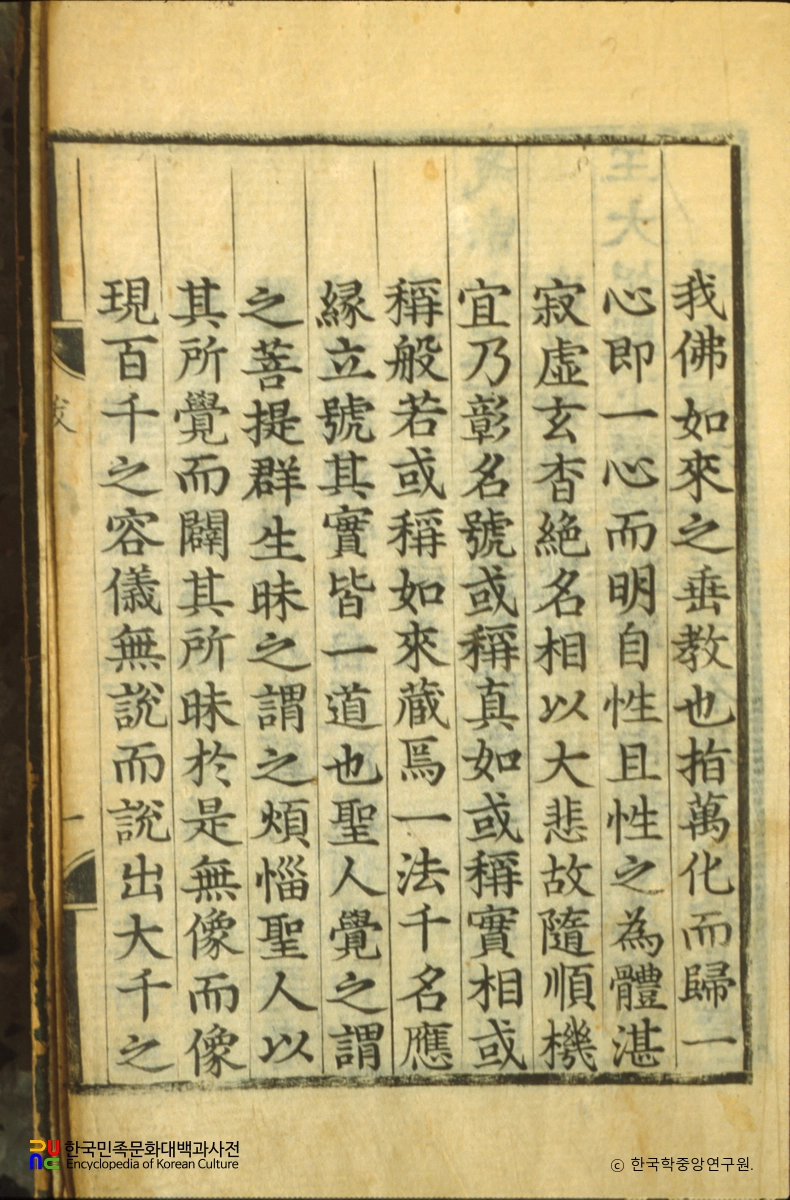 我佛如來之垂教也指萬化而歸一
心即一心而明自性且性之為體湛
寂虛玄杳絶名相以大悲故隨順機
宜乃彰名號或稱真如或稱實相或
稱般若或稱如來藏焉一法千名應
緣立號其實皆一道也聖人覺之謂
之菩提群生昧之謂之煩惱聖人以
其所覺而闢其所昧於是無像而像
現百千之容儀無說而說出大千之
一
한국민족문화대백과사전
Encyclopedia of Korean Culture
ⓒ 한국학중앙연구원.